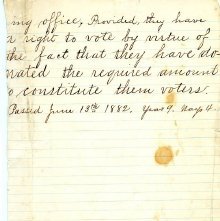 ing office, Provided, they have
a right to vote by virtue of
the fact that they have do-
nated the required amount
to constitute them voters.
Passed June 13th 1882. Yeas 9. Nays 4.